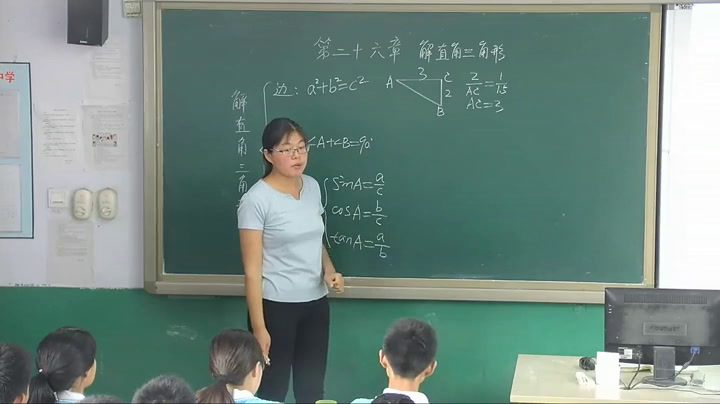 第二十六章 解直角三角形
解直角三角
边：a²+b²=c²
A 3 C
2
B
2/AC=1/1.5
AC=3
∠A+∠B=90°
sinA=a/c
cosA=b/c
tanA=a/b
中学